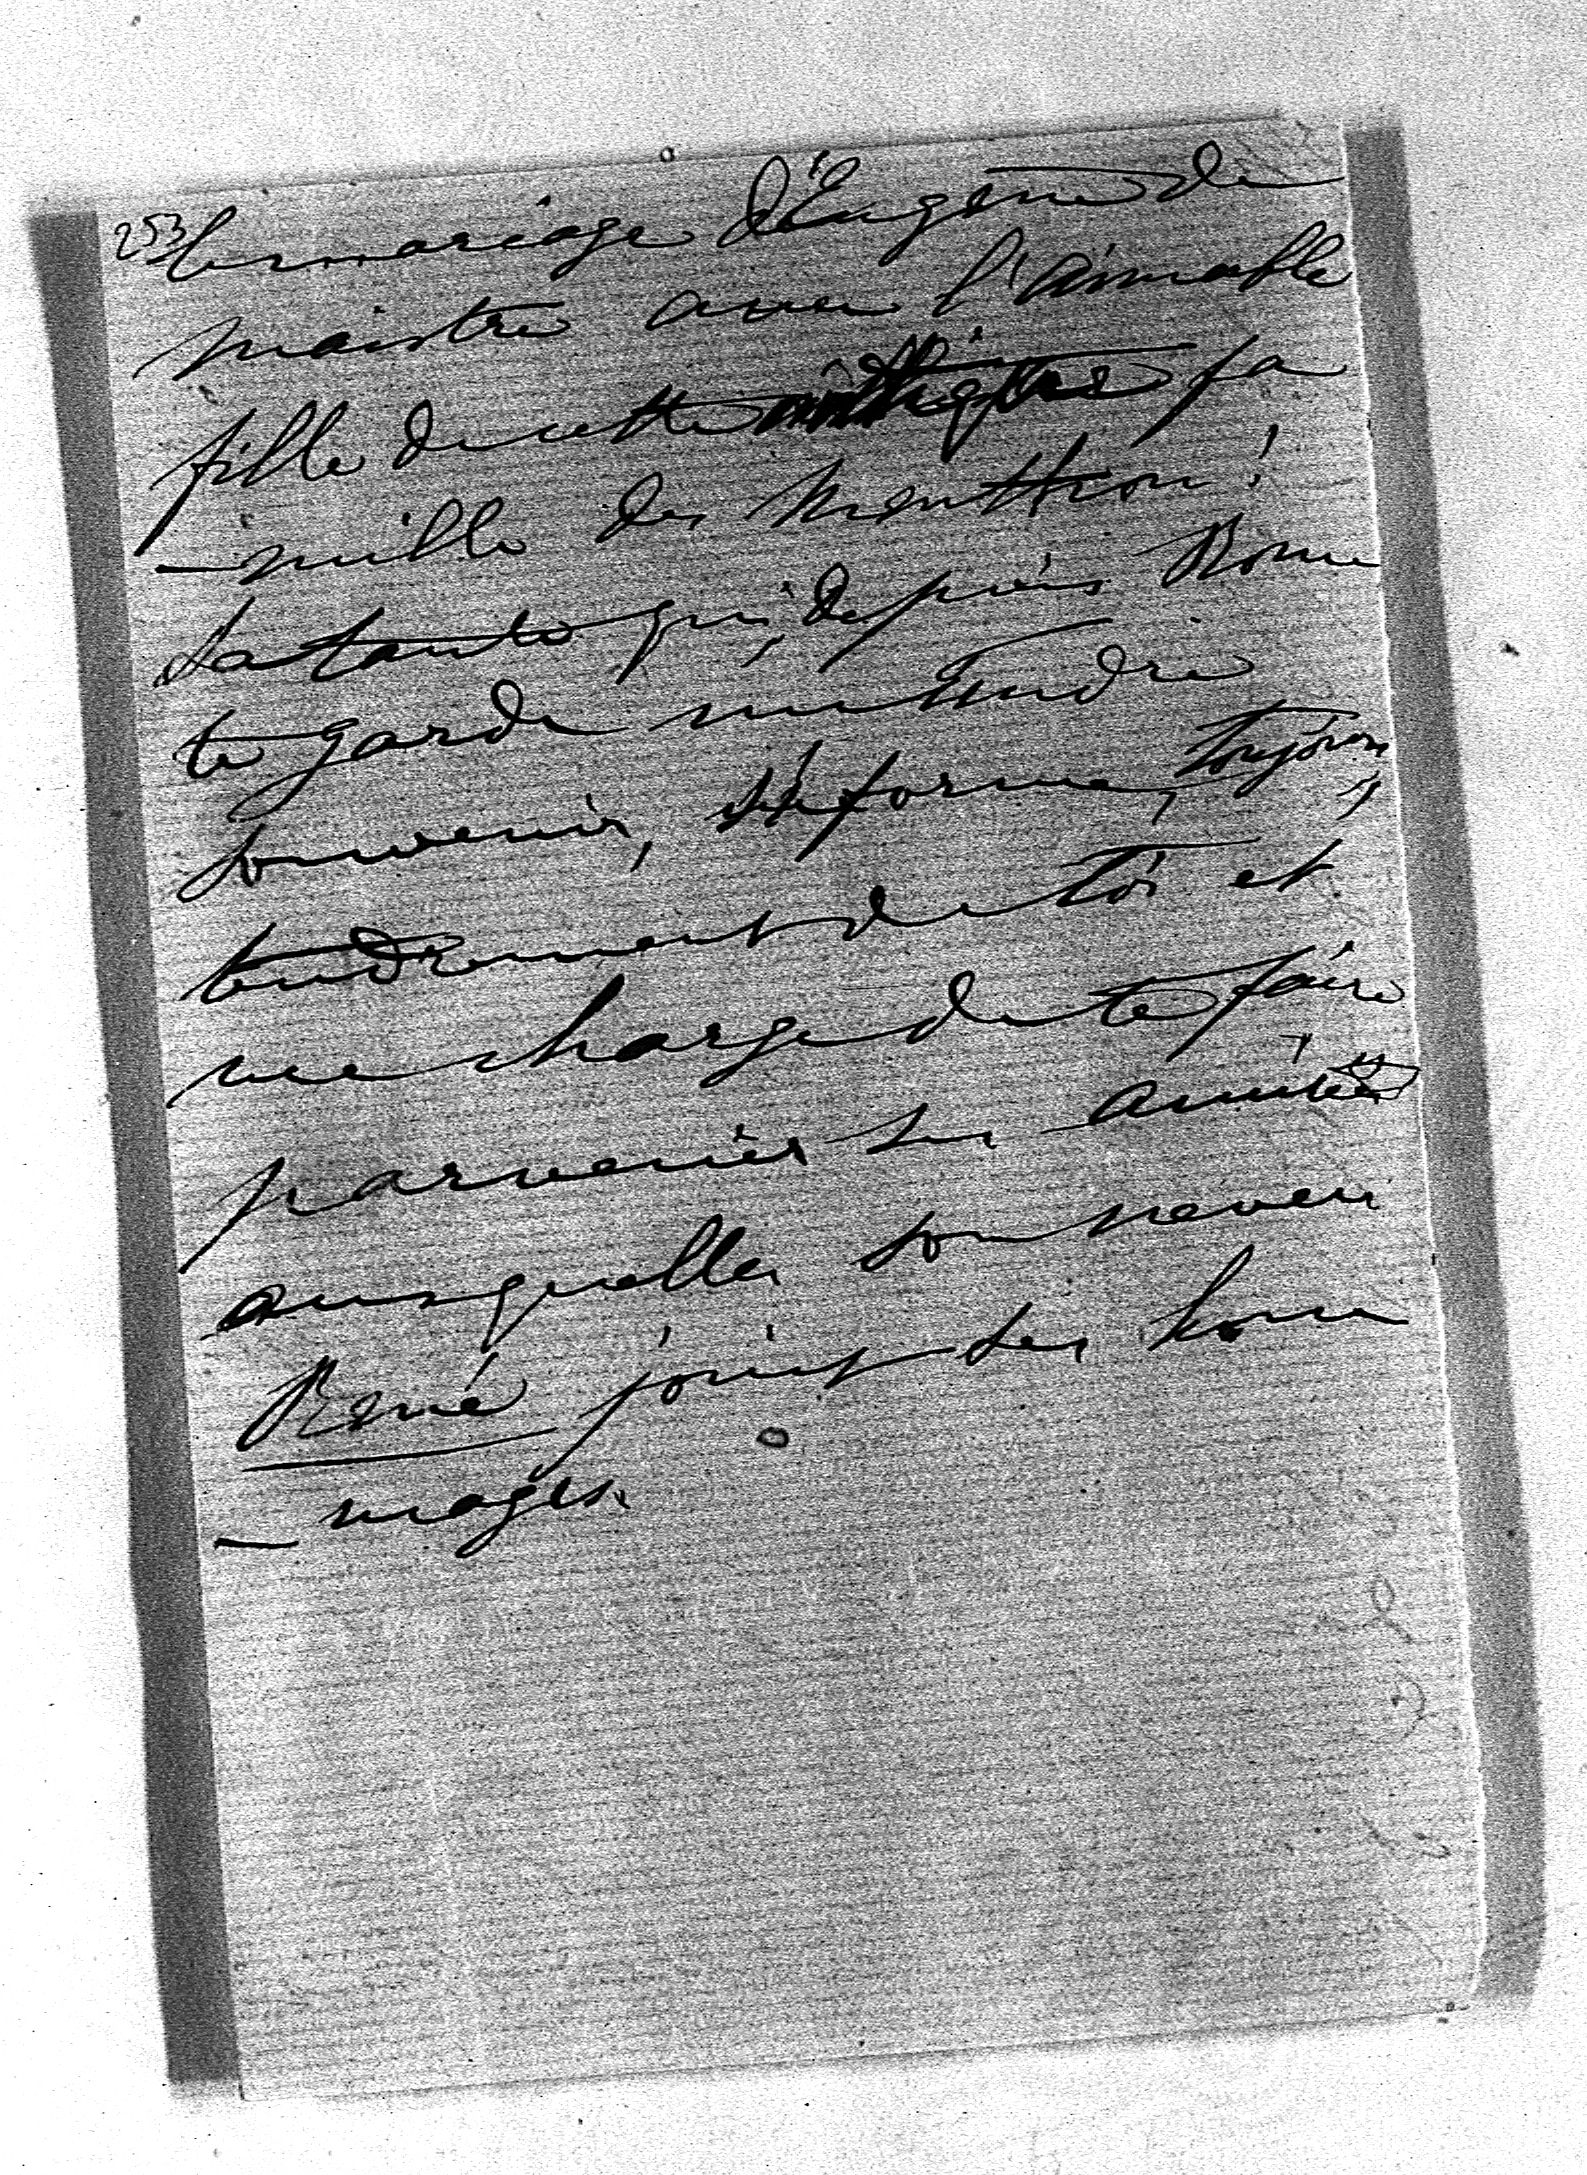 253
le mariage d'Eugène de
Maistre avec l'aimable
fille de cette antique fa
- mille des Menthon !
La tante qui, depuis Rome
te garde un tendre
souvenir, s'informe, toujours,
tendrement de toi et
me charge de te faire
parvenir ses amitiés
auxquelles son neveu
René joint ses hom
- mages.